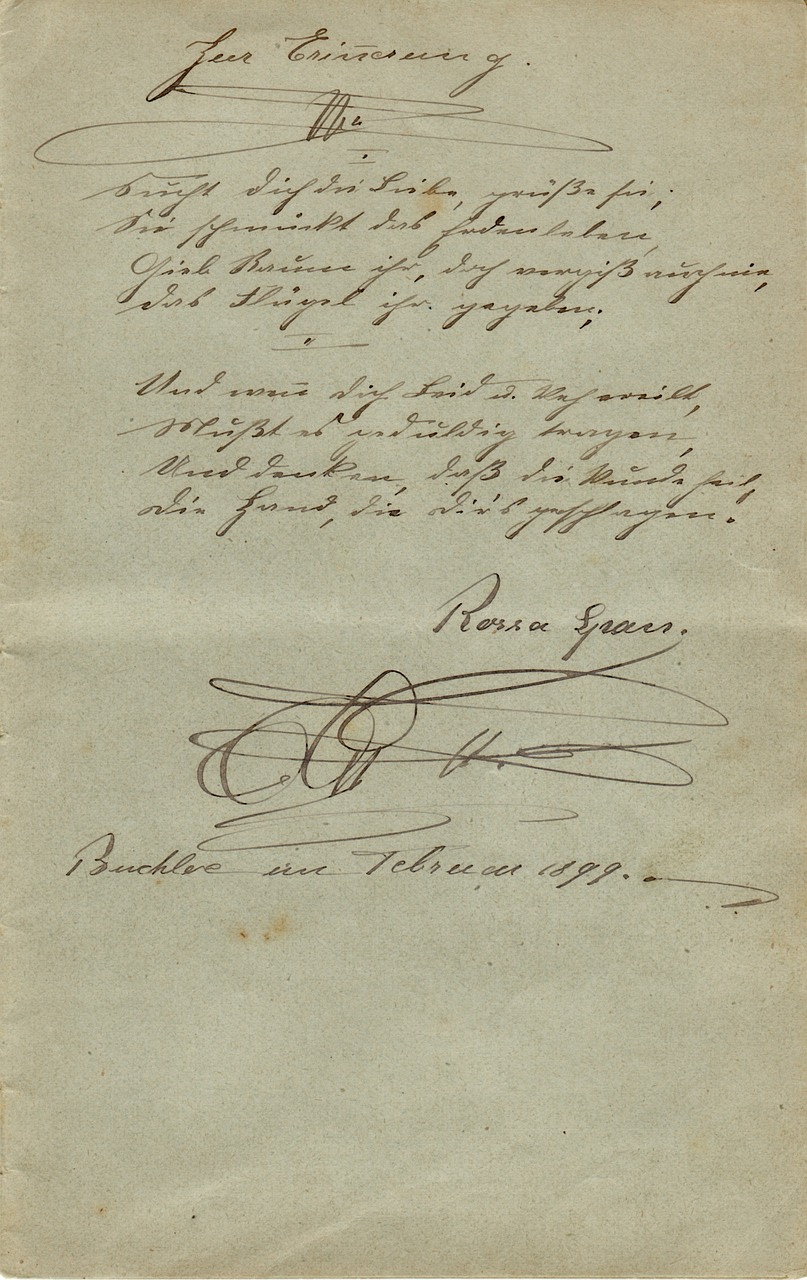 Zur Erin̄erung.
Sucht dich die Liebe, grüße sie;
Sie schmückt das Erdenleben,
Gieb Raum ihr, doch vergiß auch nie,
das Flügel ihr gegeben;
Und wen̄ dich Leid u. Weh ereilt,
Mußt es geduldig tragen,
Und denken, daß die Wunde heilt,
Die Hand, die dir's geschlagen.
Rossa
im Februar 1899.